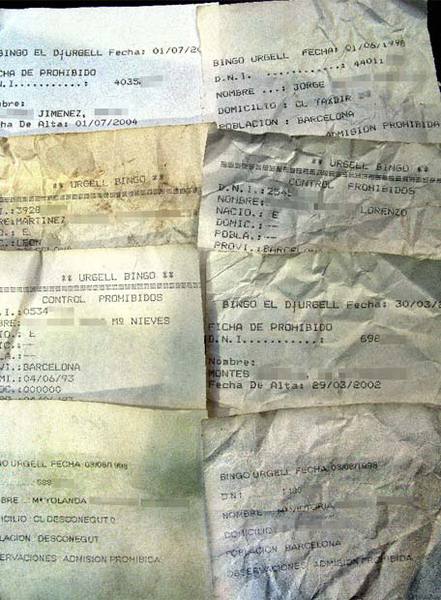 BINGO EL D|URGELL Fecha: 01/07/20
CHA DE PROHIBIDO
N.I...........: 4035
mbre:
JIMENEZ,
ha De Alta: 01/07/2004
BINGO URGELL FECHA: 01/06/1998
D.N.I. ...........: 44011
NOMBRE ...: JORGE
DOMICILIO : CL TAXDIR
POBLACION : BARCELONA
ADMISION PROHIBIDA
** URGELL BINGO **
I.:3928
RE:MARTINEZ
O.: E
C.:LEON
** URGELL BINGO **
CONTROL PROHIBIDOS
D.N.I.:2545
NOMBRE:
LORENZO
NACIO.: E
DOMIC.:--
POBLA.:--
PROVI.:BARCEL
** URGELL BINGO **
CONTROL PROHIBIDOS
I.:0534
BRE: Mª NIEVES
O.: E
IC.:--
LA.:--
VI.:BARCELONA
MI.:04/06/93
OC.:000000
BINGO EL D|URGELL Fecha: 30/03/
FICHA DE PROHIBIDO
D.N.I...........: 698
Nombre:
MONTES
Fecha De Alta: 29/03/2002
GO URGELL FECHA 03/08/1998
BRE Mª YOLANDA
ICILIO CL DESCONEGUT 0
LACION DESCONEGUT
SERVACIONES ADMISION PROHIBIDA
BINGO URGELL FECHA 03/08/1998
D.N.I
NOMBRE Mª VICTORIA
DOMICILIO
POBLACION BARCELONA
OBSERVACIONES ADMISION PROHIBIDA